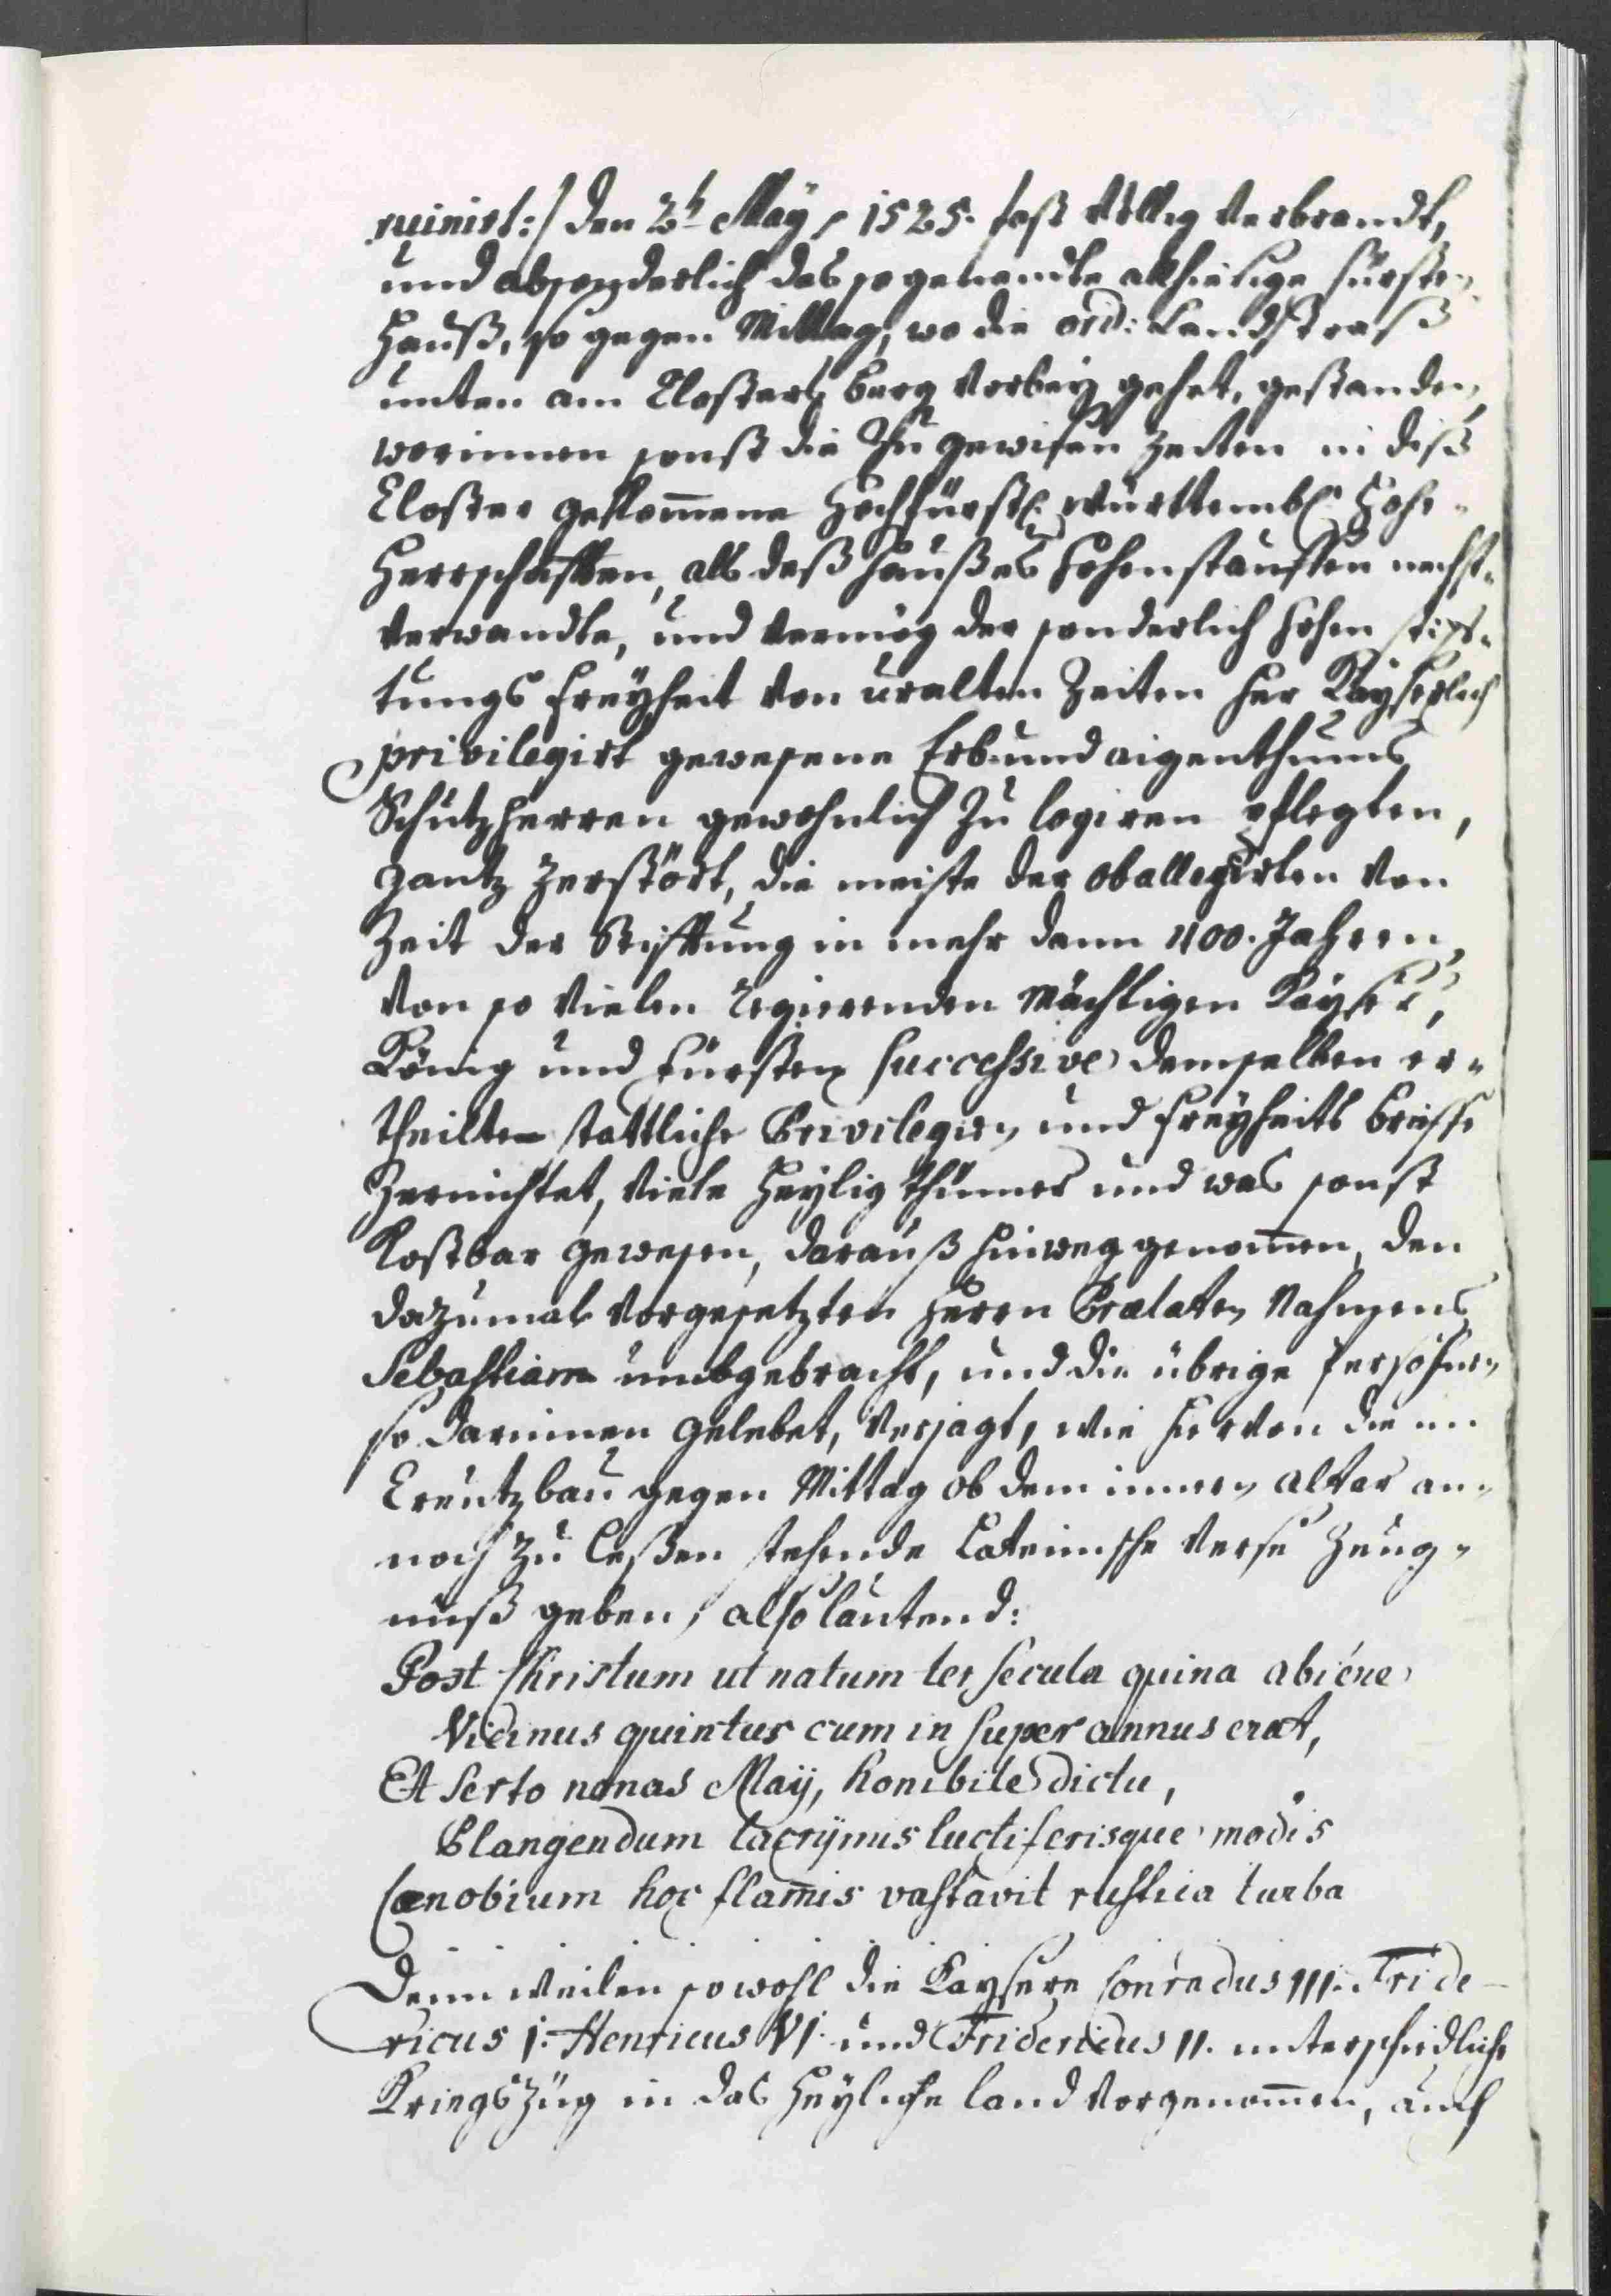 ruinirt:/ den 2t May, 1525. fast völlig verbrandt,
und absonderlich das so genandte allhiesige Fürsten-
Hauß, so gegen Mittag, wo die ord: Landstraß
unten am Closters berg vorbey gehet, gestanden,
worinnen sonst die zu gewisen Zeiten in diß
Closter gekom̄ene Hochfürstl: Württembl: Hohe-
Herrschafften, als deß Haußes Hohenstauffen nechst-
verwandte, und vermög der sonderlich hohen stiff-
tungs Freyheit von uralten Zeiten her Kayserlich
privilegirt gewesene Erb- und aigenthums
Schutzherren gewohnlich zu logiren pflegten,
gantz zerstört, die meiste der oballegirten von
Zeit der Stifftung in mehr dann 400. Jahren
von so vielen regierenden Mächtigen Kayser,
König und Fürsten successive demselben er-
theilten stattliche Privilegien und Freyheits brieffe
zernichtet, viele Heyligthümer und was sonst
Kostbar gewesen, darauß hinweg genom̄en, den
dazumal vorgesetzten Herrn Prælaten Nahmens
Sebastian umbgebracht, und die übrige Persohnen
so darinnen gelebet, verjagt, wie hiervon die im
Creutzbau gegen Mittag ob dem innern altar an-
noch zu leßen stehende Lateinische Verse Zeug-
nuß geben, also lautend:
Post Christum ut natum ter secula quina abiére
Vicinus quintus cum in super annus erat,
Et Serto nonas Maÿ, horribile dictu,
Plangendum lacrÿmis luctiferisque modis
Cœnobium hoc flam̄is vastavit rustica turba
Denn weilen sowohl die Kaysere Conradus III. Fride-
ricus I. Henricus VI. und Fridericus II. unterschidliche
Kriegszüg in das Heyliche land vorgenom̄en, auch